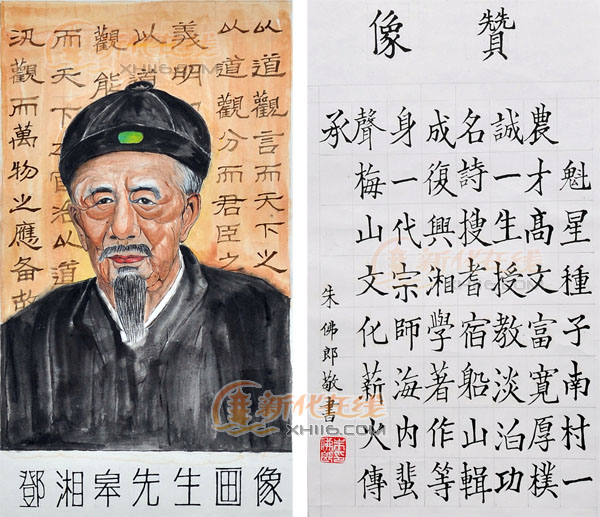 以道觀言而天下之
以道觀分而君臣之
義明
以
觀能
而天下之官治以道
汎觀而萬物之應备故
鄧湘皋先生画像
像贊
魁星種子南村一
農才高文富寬厚樸
誠一生授教淡泊功
名詩搜耆宿船山輯
成復興湘學著作等
身一代宗師海内蜚
聲梅山文化薪火傳
承
朱佛郎敬書
新化在线
XH116.COM